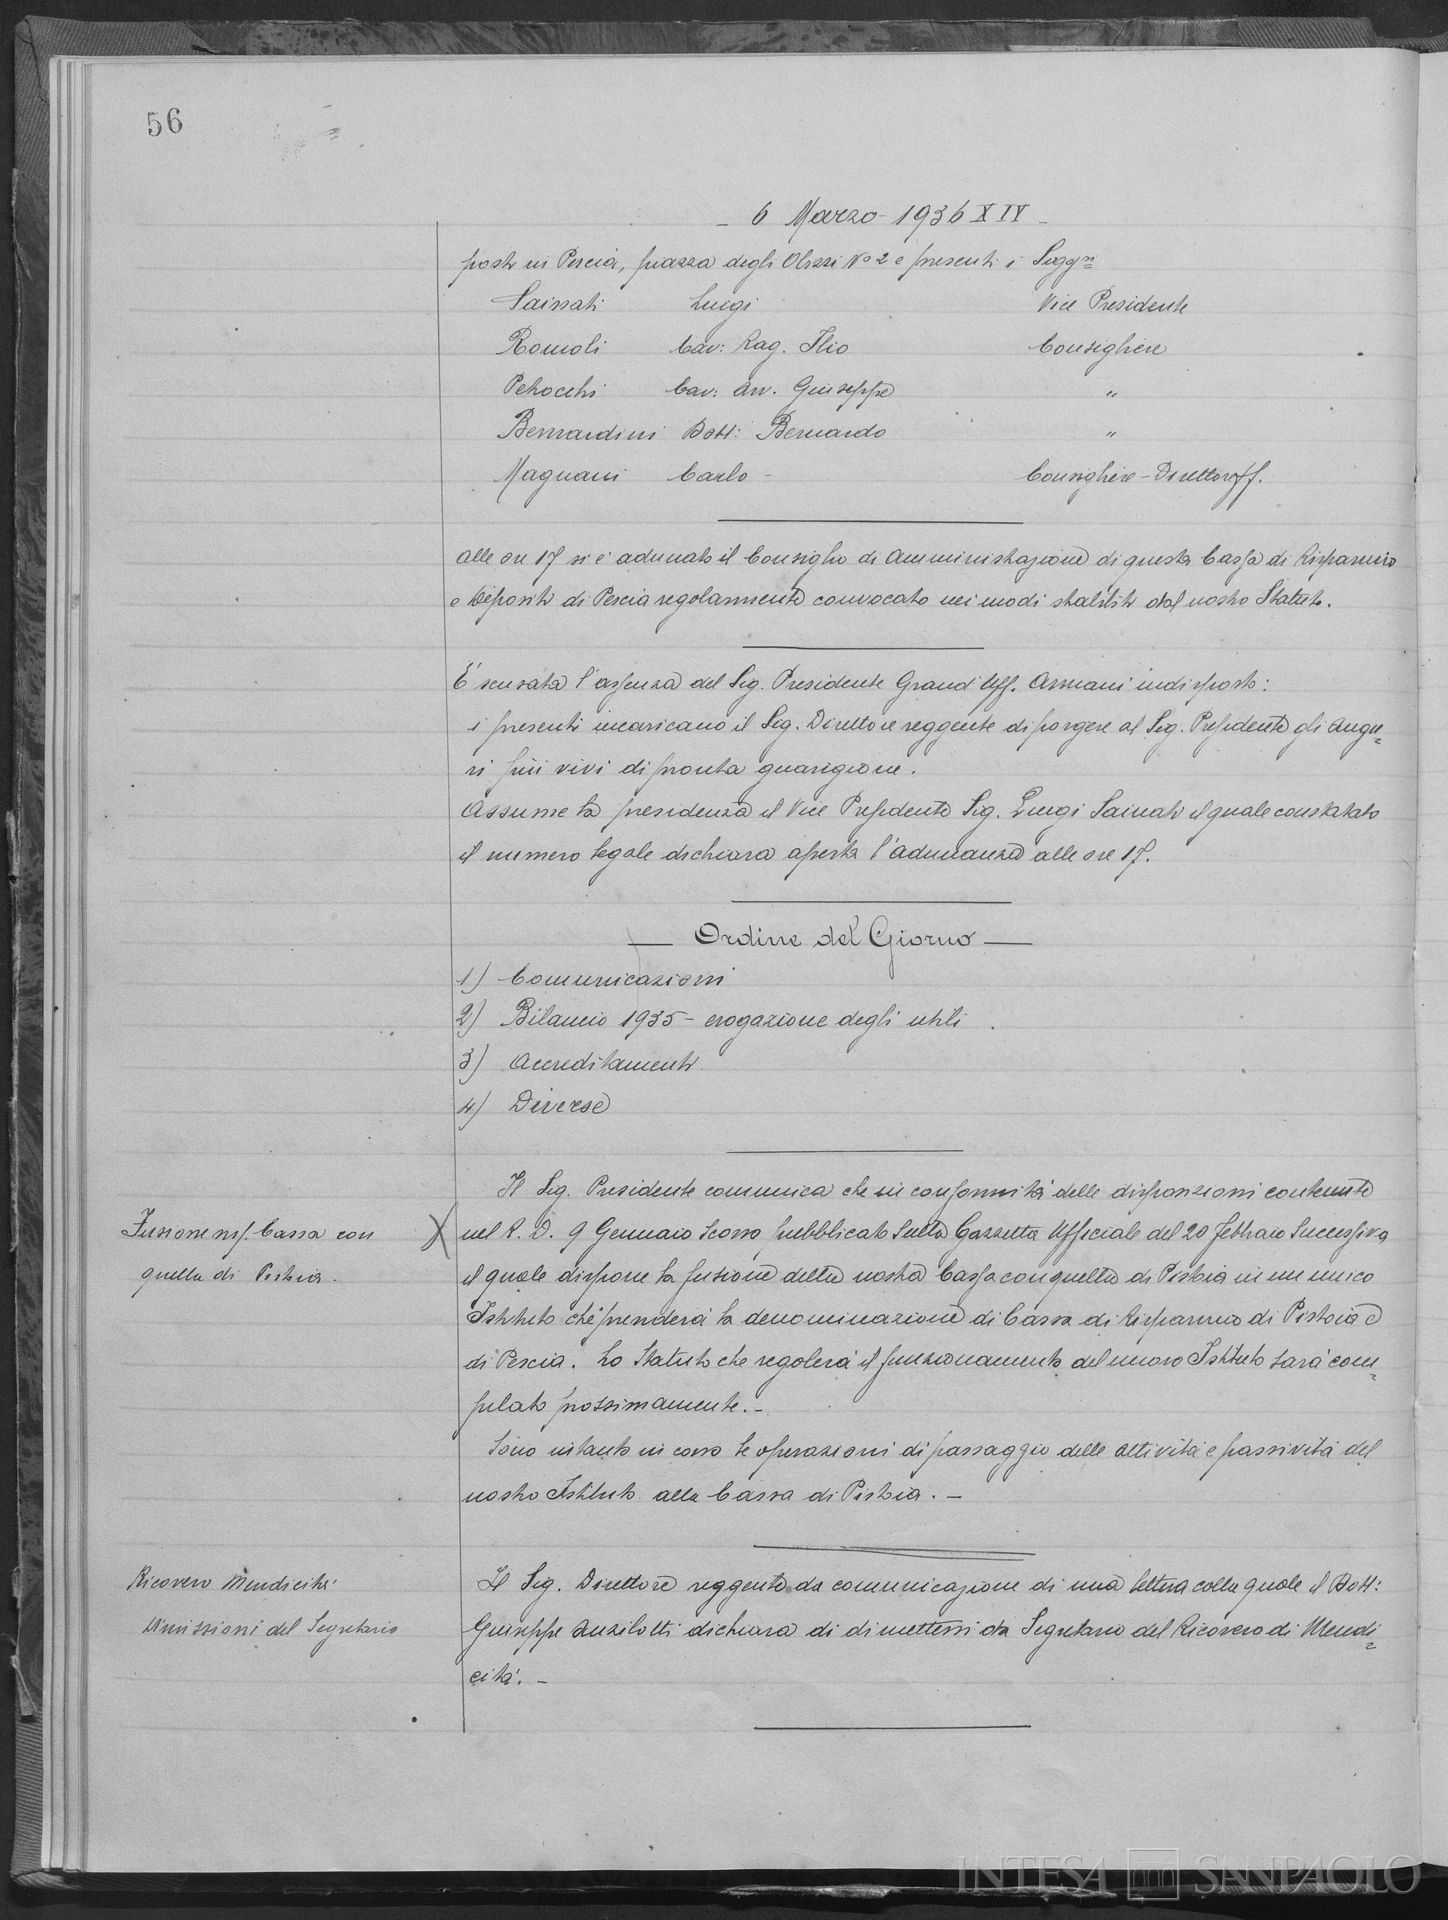 56
- 6 Marzo 1936 XIV -
posti in Pescia, piazza degli Obizzi No 2 e presenti i Siggri
Sainati Luigi Vice Presidente
Romoli Cav: Rag. Ilio Consigliere
Petrocchi Cav: Avv. Giuseppe "
Bernardini Dott: Bernardo "
Magnani Carlo - Consigliere - Direttore ff.
alle ore 17 si è adunato il Consiglio di Amministrazione di questa Cassa di Risparmio
e Depositi di Pescia regolarmente convocato nei modi stabiliti dal nostro Statuto.
E' scusata l'assenza del Sig. Presidente Grand'Uff. indisposto:
i presenti incaricano il Sig. Direttore reggente di porgere al Sig. Presidente gli augu=
ri più vivi di pronta guarigione.
Assume la presidenza il Vice Presidente Sig. Luigi Sainati il quale constatato
il numero legale dichiara aperta l'adunanza alle ore 17.
— Ordine del Giorno —
1) Comunicazioni
2) Bilancio 1935 - erogazione degli utili
3) Accreditamenti
4) Diverse
Il Sig. Presidente comunica che in conformità delle disposizioni contenute
Fusione ns/. Cassa con
quella di Pistoia.
nel R. D. 9 Gennaio scorso pubblicato sulla Gazzetta Ufficiale del 20 febbraio successivo
il quale dispone la fusione della nostra Cassa con quella di Pistoia in un unico
Istituto che prenderà la denominazione di Cassa di Risparmio di Pistoia e
di Pescia. Lo Statuto che regolerà il funzionamento del nuovo Istituto sarà com=
pilato prossimamente. -
Sono intanto in corso le operazioni di passaggio delle attività e passività del
nostro Istituto alla Cassa di Pistoia. -
Ricovero Mendicità:
Dimissioni del Segretario
Il Sig. Direttore reggente da comunicazione di una lettera colla quale il Dott:
Giuseppe Anzilotti dichiara di dimettersi da Segretario del Ricovero di Mendi=
cità. -
INTESA SANPAOLO